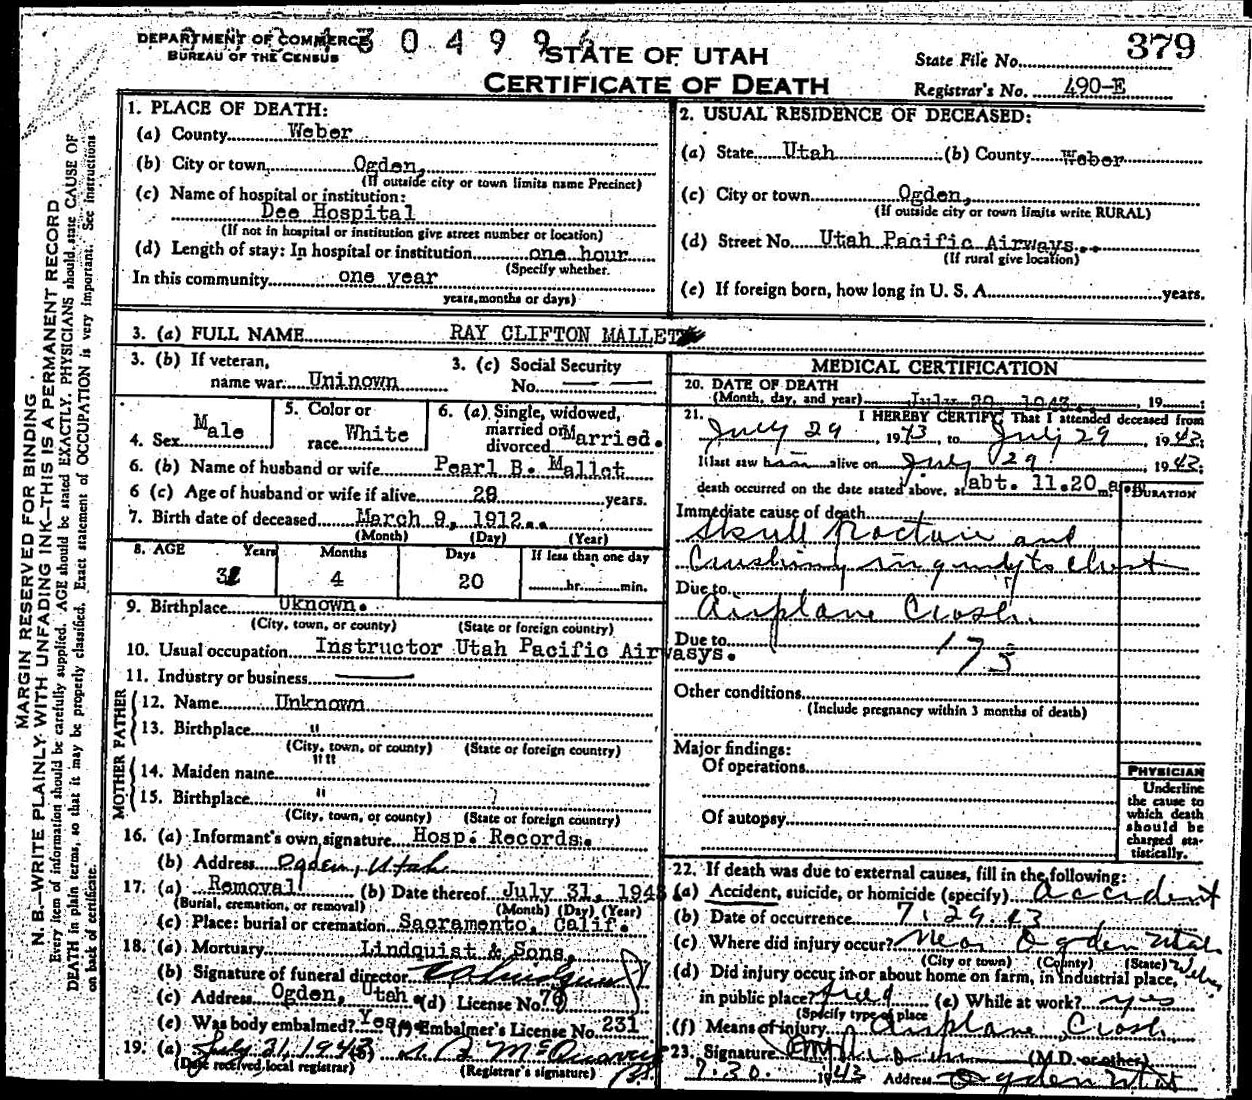 DEPARTMENT OF COMMERCE
BUREAU OF THE CENSUS
3 0 4 9 9
STATE OF UTAH
CERTIFICATE OF DEATH
State File No. 379
Registrar's No. 490-E
MARGIN RESERVED FOR BINDING
N. B.—WRITE PLAINLY WITH UNFADING INK—THIS IS A PERMANENT RECORD
Every item of information should be carefully supplied. AGE should be stated EXACTLY. PHYSICIANS should state CAUSE OF
DEATH in plain terms, so that it may be properly classified. Exact statement of OCCUPATION is very important. See instructions
on back of certificate.
1. PLACE OF DEATH:
(a) County Weber
(b) City or town Ogden,
(If outside city or town limits name Precinct)
(c) Name of hospital or institution:
Dee Hospital
(If not in hospital or institution give street number or location)
(d) Length of stay: In hospital or institution one hour
(Specify whether
In this community one year
years, months or days)
2. USUAL RESIDENCE OF DECEASED:
(a) State Utah (b) County Weber
(c) City or town Ogden,
(If outside city or town limits write RURAL)
(d) Street No. Utah Pacific Airways..
(If rural give location)
(e) If foreign born, how long in U. S. A. years.
3. (a) FULL NAME RAY CLIFTON MALLET
3. (b) If veteran,
name war Uninown
3. (c) Social Security
No. — —
4. Sex Male
5. Color or
race White
6. (a) Single, widowed,
married or
divorced Married.
6. (b) Name of husband or wife Pearl B. Mallet
6 (c) Age of husband or wife if alive 28 years.
7. Birth date of deceased March 9, 1912..
(Month) (Day) (Year)
8. AGE Years Months Days If less than one day
31 4 20 hr. min.
9. Birthplace Uknown.
(City, town, or county) (State or foreign country)
10. Usual occupation Instructor Utah Pacific Airwasys.
11. Industry or business
FATHER
12. Name Unknown
13. Birthplace "
(City, town, or county) (State or foreign country)
MOTHER
14. Maiden name ""
15. Birthplace "
(City, town, or county) (State or foreign country)
16. (a) Informant's own signature Hosp. Records.
(b) Address Ogden, Utah
17. (a) Removal (b) Date thereof July 31, 1943
(Burial, cremation, or removal) (Month) (Day) (Year)
(c) Place: burial or cremation Sacramento, Calif.
18. (a) Mortuary Lindquist & Sons,
(b) Signature of funeral director
(c) Address Ogden, Utah. (d) License No. 76
(e) Was body embalmed? Yes (f) Embalmer's License No. 231
19. (a) July 31, 1943 (b)
(Date received local registrar) (Registrar's signature)
MEDICAL CERTIFICATION
20. DATE OF DEATH
(Month, day, and year) July 29 1943. 19
21. I HEREBY CERTIFY, That I attended deceased from
July 29, 1943, to July 29, 1943;
I last saw him alive on July 29, 1943;
death occurred on the date stated above, at abt. 11.20 a.m.
DURATION
Immediate cause of death
Skull fracture and
Crushing injury to chest
Due to
Airplane Crash.
Due to
173
Other conditions
(Include pregnancy within 3 months of death)
Major findings:
Of operations
Of autopsy
PHYSICIAN
Underline
the cause to
which death
should be
charged sta-
tistically.
22. If death was due to external causes, fill in the following:
(a) Accident, suicide, or homicide (specify) accident
(b) Date of occurrence 7.29.43
(c) Where did injury occur? Near Ogden Utah
(City or town) (County) (State) Weber
(d) Did injury occur in or about home on farm, in industrial place,
in public place? field (e) While at work? yes
(Specify type of place
(f) Means of injury Airplane Crash
23. Signature (M.D. or other)
7.30. 1943 Address Ogden Utah